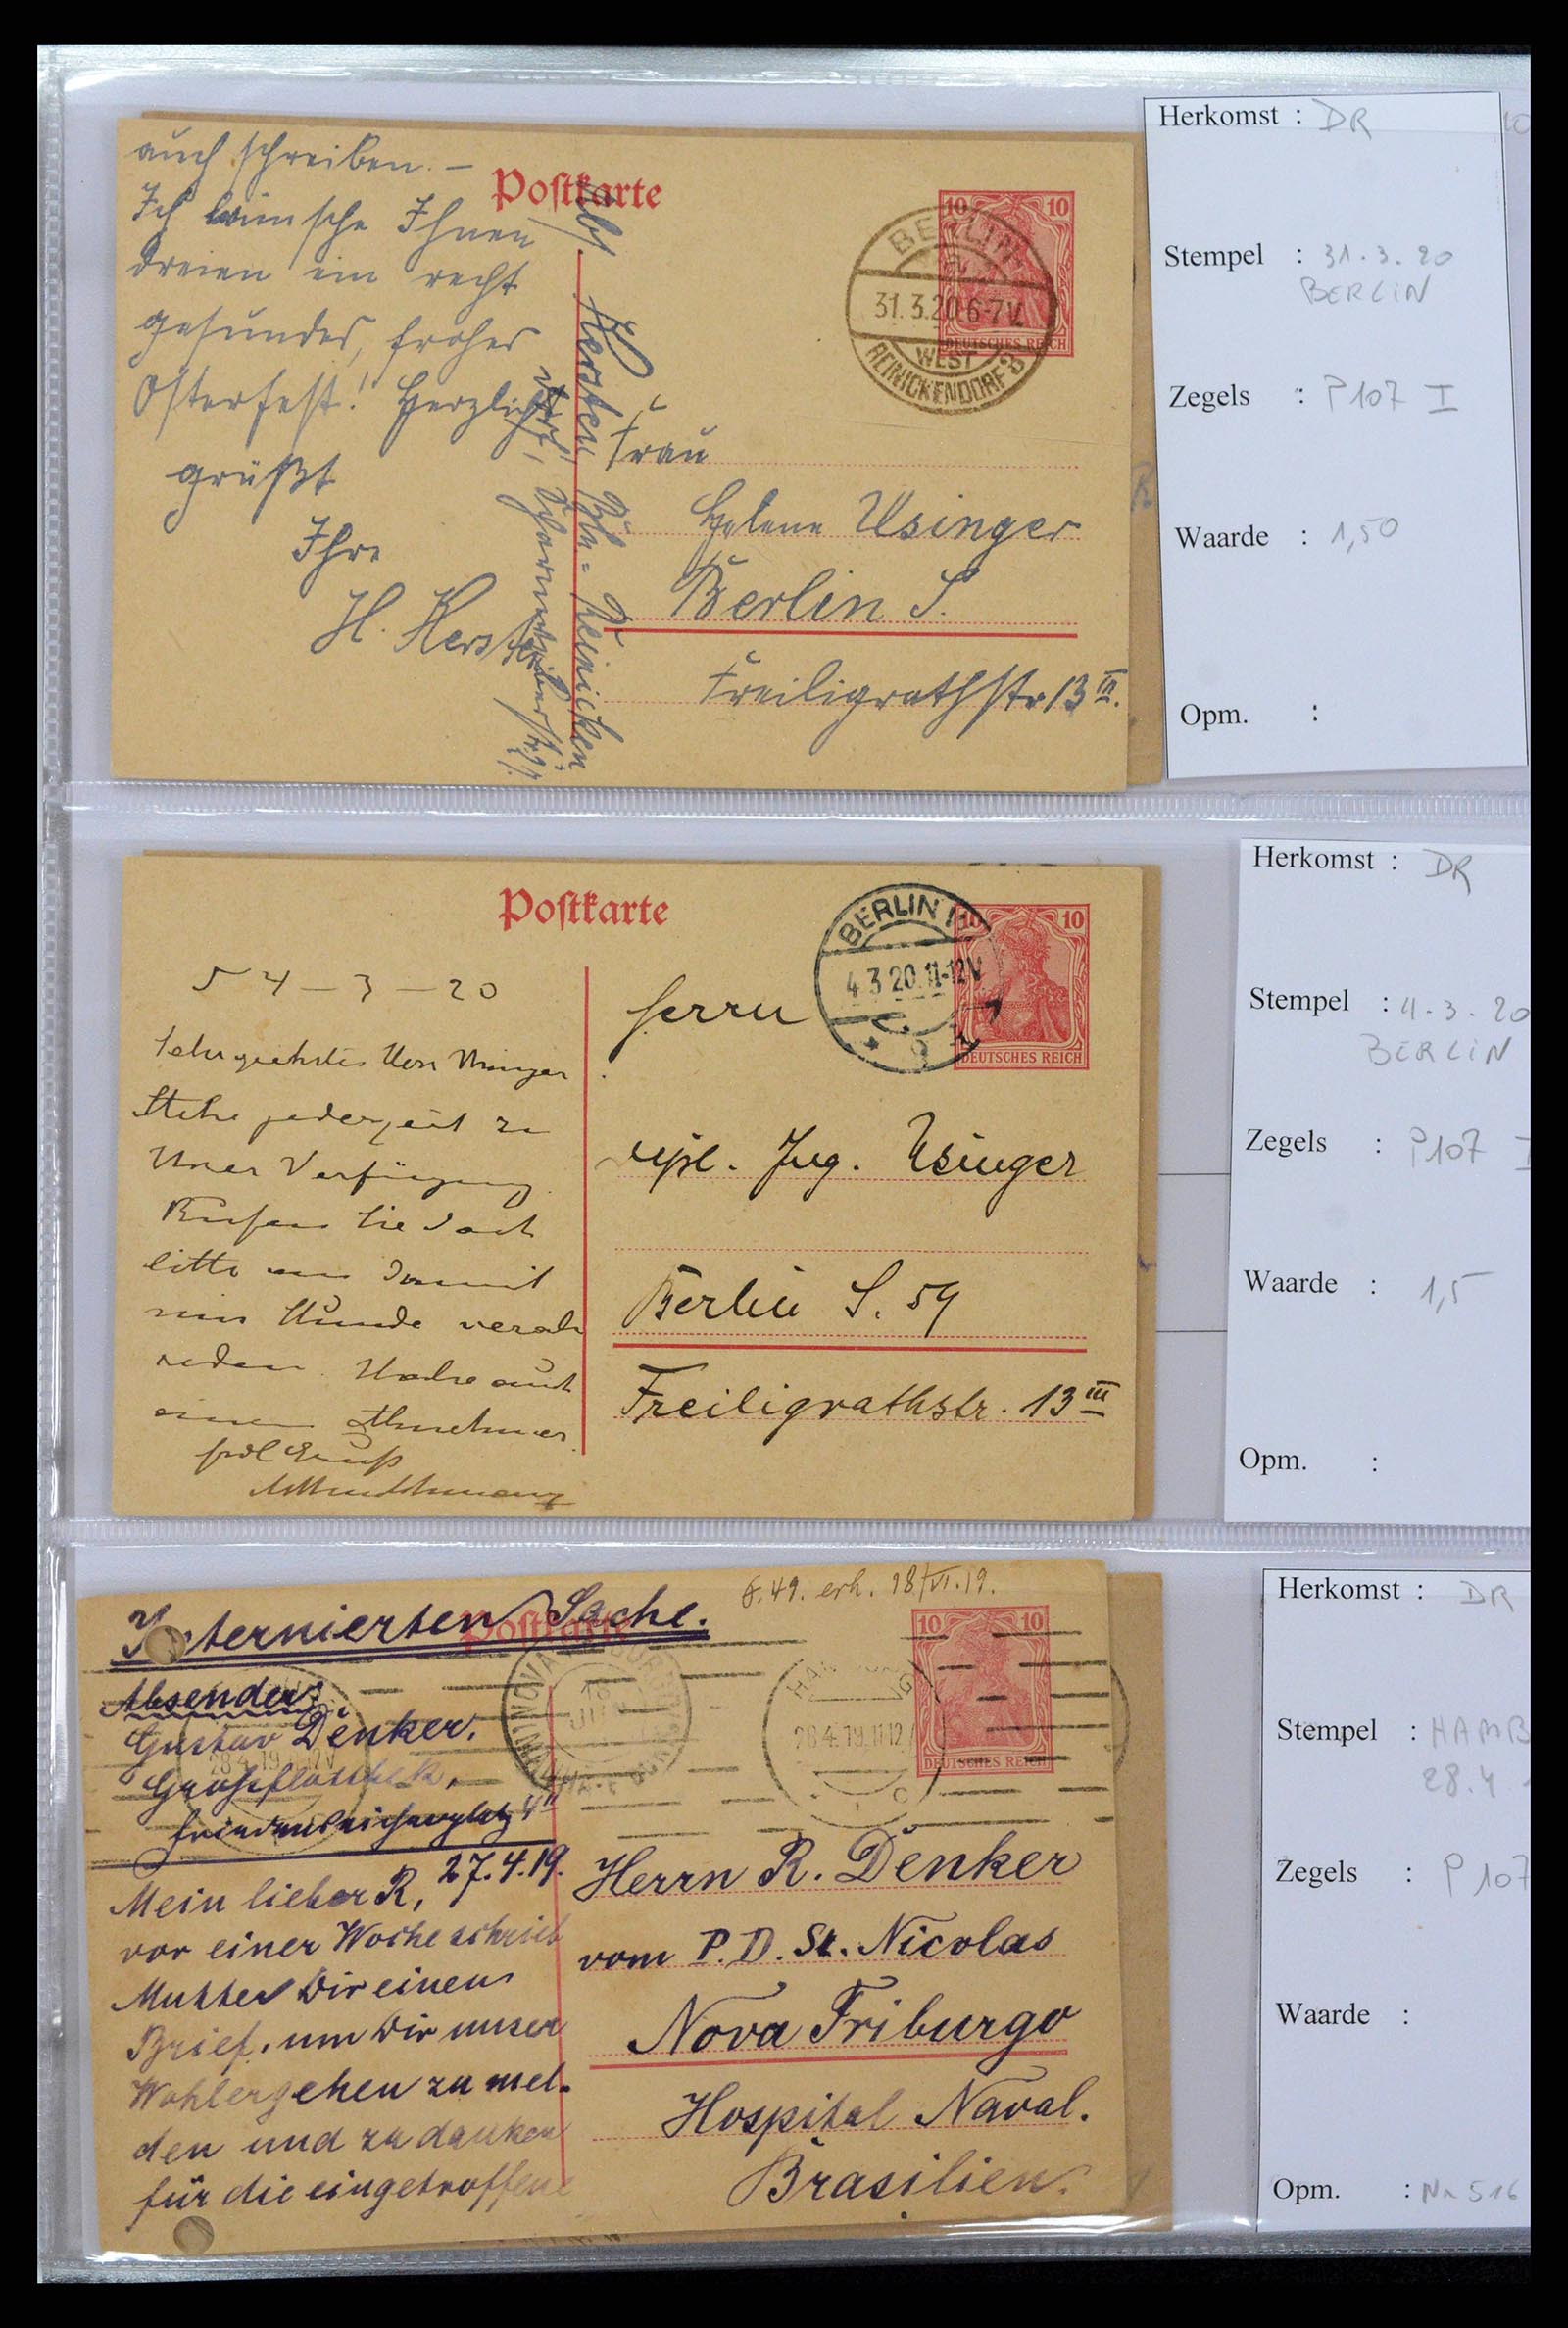 auch schreiben. –
Ich wünsche Ihnen
dreien ein recht
gesundes, frohes
Osterfest! Herzlichst
grüßt
Ihre
H. Kersten
Postkarte
Abs. Kersten Bln-Reinicken
10 10
DEUTSCHES REICH
BERLIN
31.3.20.6-7V.
WEST
REINICKENDORF 3
Frau
Helene Usinger
Berlin S.
Freiligrathstr 13 III.
Herkomst : DR
Stempel : 31.3.20
BERLIN
Zegels : P107 I
Waarde : 1,50
Opm. :
Postkarte
10 10
DEUTSCHES REICH
BERLIN
4.3.20.11-12V
4-3-20
Sehr geehrter Herr Usinger
Stehe jederzeit zu
Ihrer Verfügung
Rufen Sie doch
bitte an damit
wir Stunde verab
reden. Habe auch
einen Abnehmer.
Herrn
Dipl. Ing. Usinger
Berlin S. 59
Freiligrathstr. 13 III
Herkomst : DR
Stempel : 4.3.20
BERLIN
Zegels : P107 I
Waarde : 1,5
Opm. :
Internierten Sache.
Postkarte
erh. 18/VI.19.
10 10
DEUTSCHES REICH
28.4.19.11-12
Absender:
Gustav Denker.
Grossflottbek,
27.4.19.
Mein lieber R,
vor einer Woche schrieb
Mutter Dir einen
Brief, um Dir unser
Wohlergehen zu mel-
den und zu danken
für die eingetroffene
Herrn R. Denker
vom P.D. St. Nicolas
Nova Friburgo
Hospital Naval.
Brasilien.
Herkomst : DR
Stempel : HAMB
28.4
Zegels : P 107
Waarde :
Opm. : Nr 516